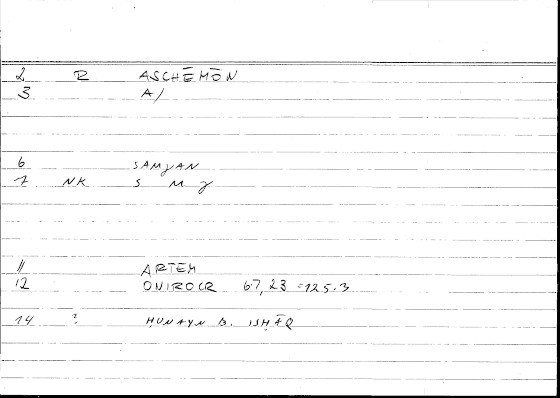 2 R ASCHĒMŌN
3 A/
6 SAMYAN
7 NK S M Y
11 ARTEM
12 ONIROCR 67,23 = 125.3
14 ? ḤUNAYN B. ISḤĀQ